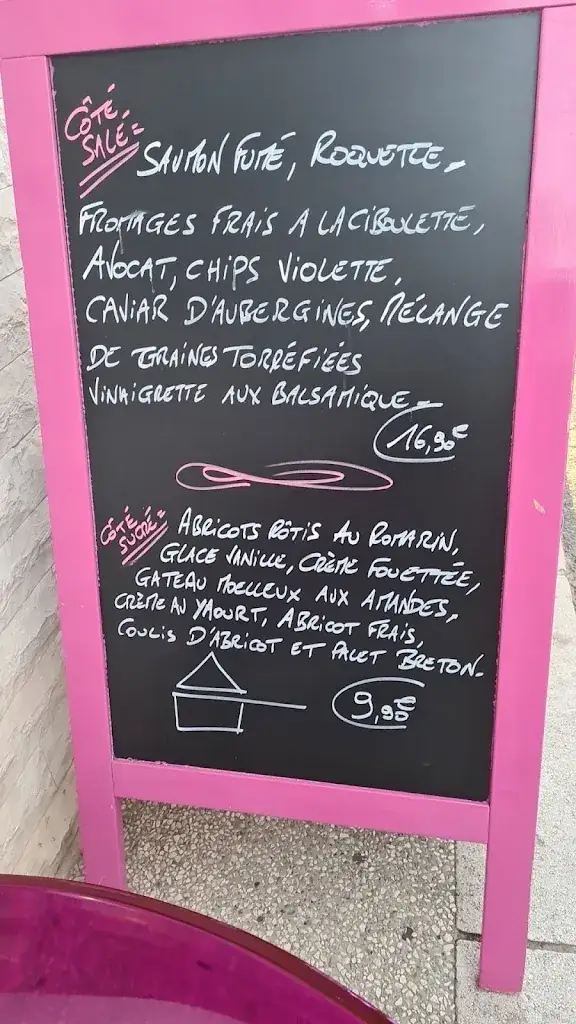 CÔTÉ
SALÉ =
SAUMON FUMÉ, ROQUETTE,
FROMAGES FRAIS A LA CIBOULETTE,
AVOCAT, CHIPS VIOLETTE,
CAVIAR D'AUBERGINES, MÉLANGE
DE GRAINES TORRÉFIÉES
VINAIGRETTE AUX BALSAMIQUE -
16,90€
CÔTÉ
SUCRÉ =
ABRICOTS RÔTIS AU ROMARIN,
GLACE VANILLE, CRÈME FOUETTÉE,
GATEAU MOELLEUX AUX AMANDES,
CRÈME AU YAOURT, ABRICOT FRAIS,
COULIS D'ABRICOT ET PALET BRETON.
9,90€